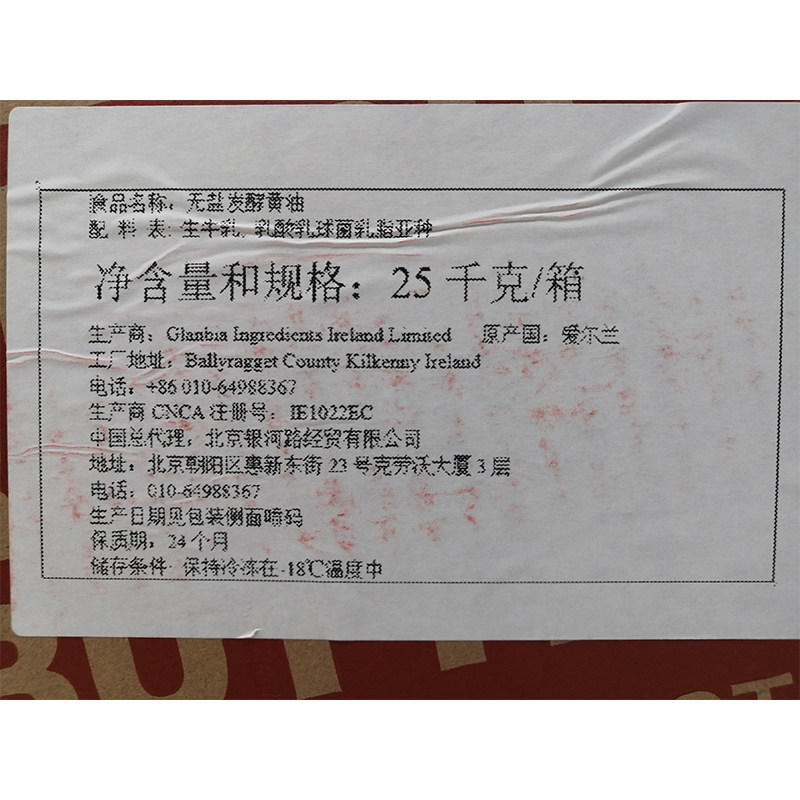 食品名称：无盐发酵黄油
配 料 表: 生牛乳, 乳酸乳球菌乳脂亚种
净含量和规格：25 千克/箱
生产商：Glanbia Ingredients Ireland Limited 原产国：爱尔兰
工厂地址：Ballyragget County Kilkenny Ireland
电话：+86 010-64988367
生产商 CNCA 注册号：IE1022EC
中国总代理：北京银河路经贸有限公司
地址：北京朝阳区惠新东街 23 号克劳沃大厦 3 层
电话：010-64988367
生产日期见包装侧面喷码
保质期：24 个月
储存条件: 保持冷冻在-18℃温度中